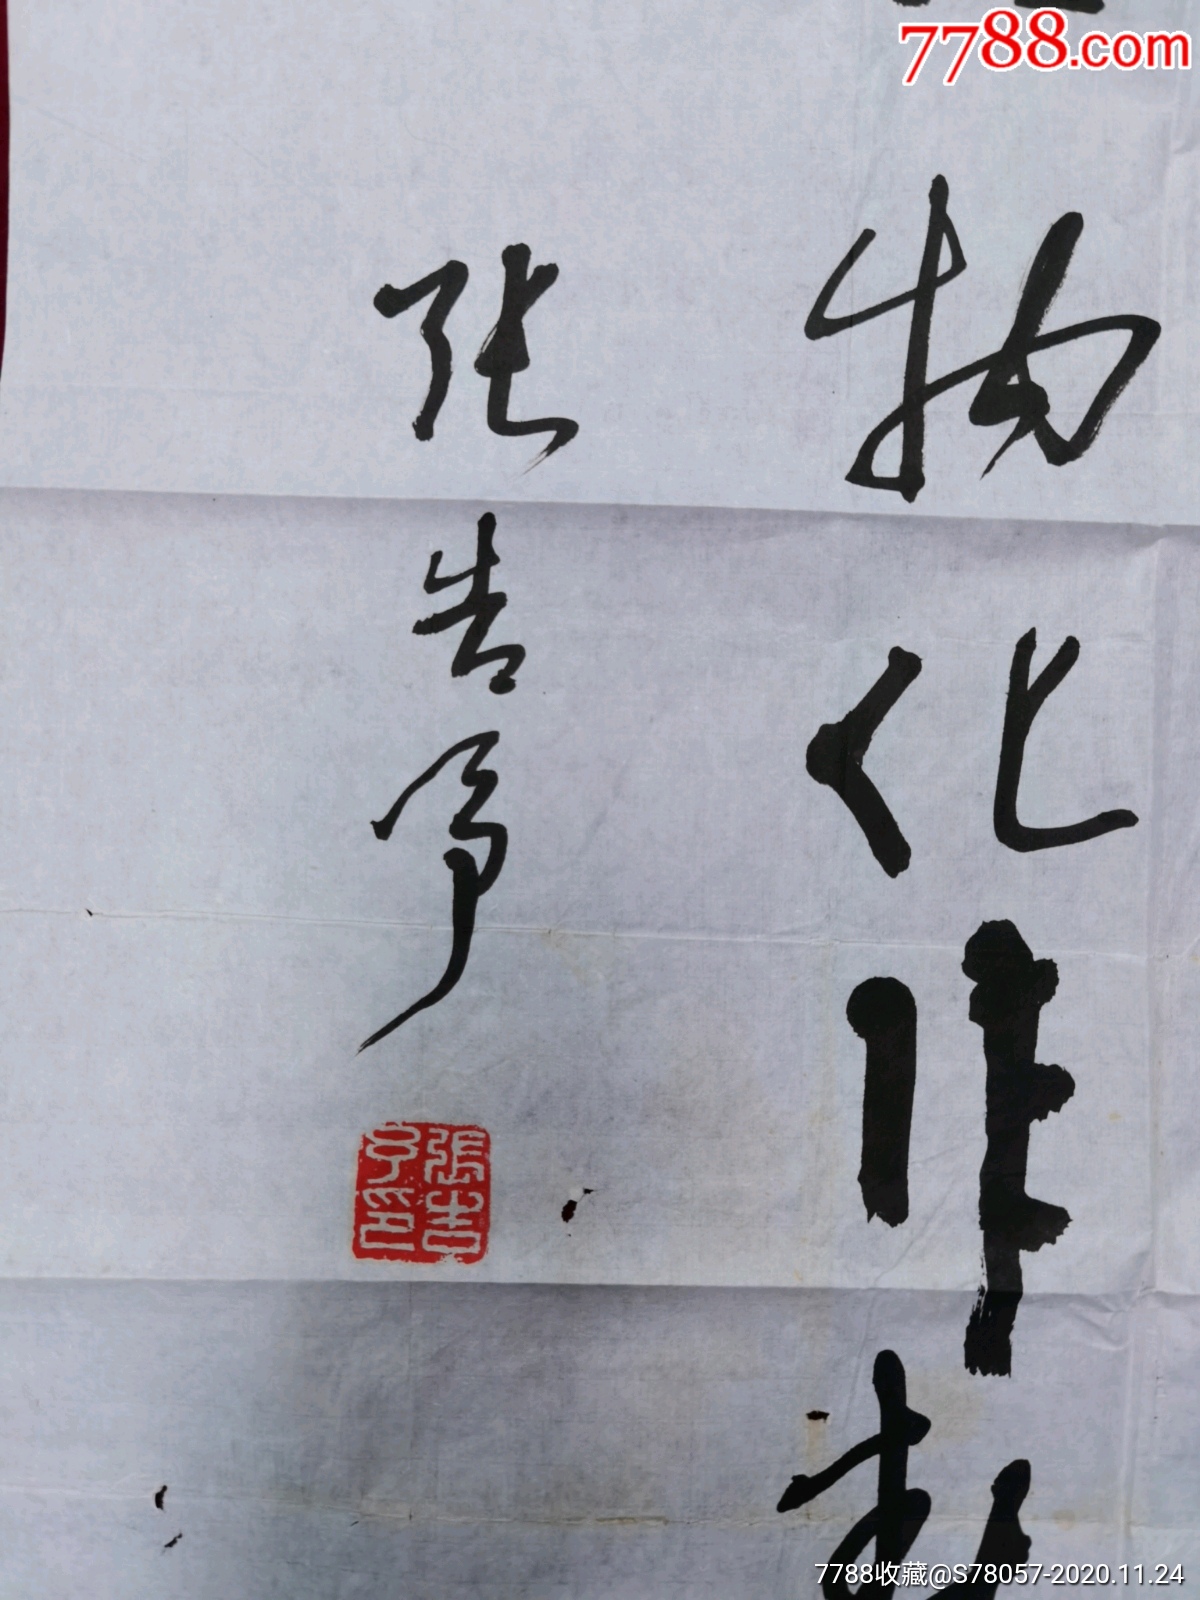 7788.com
物化作
张吉亨
張吉
亨印
7788收藏@S78057-2020.11.24